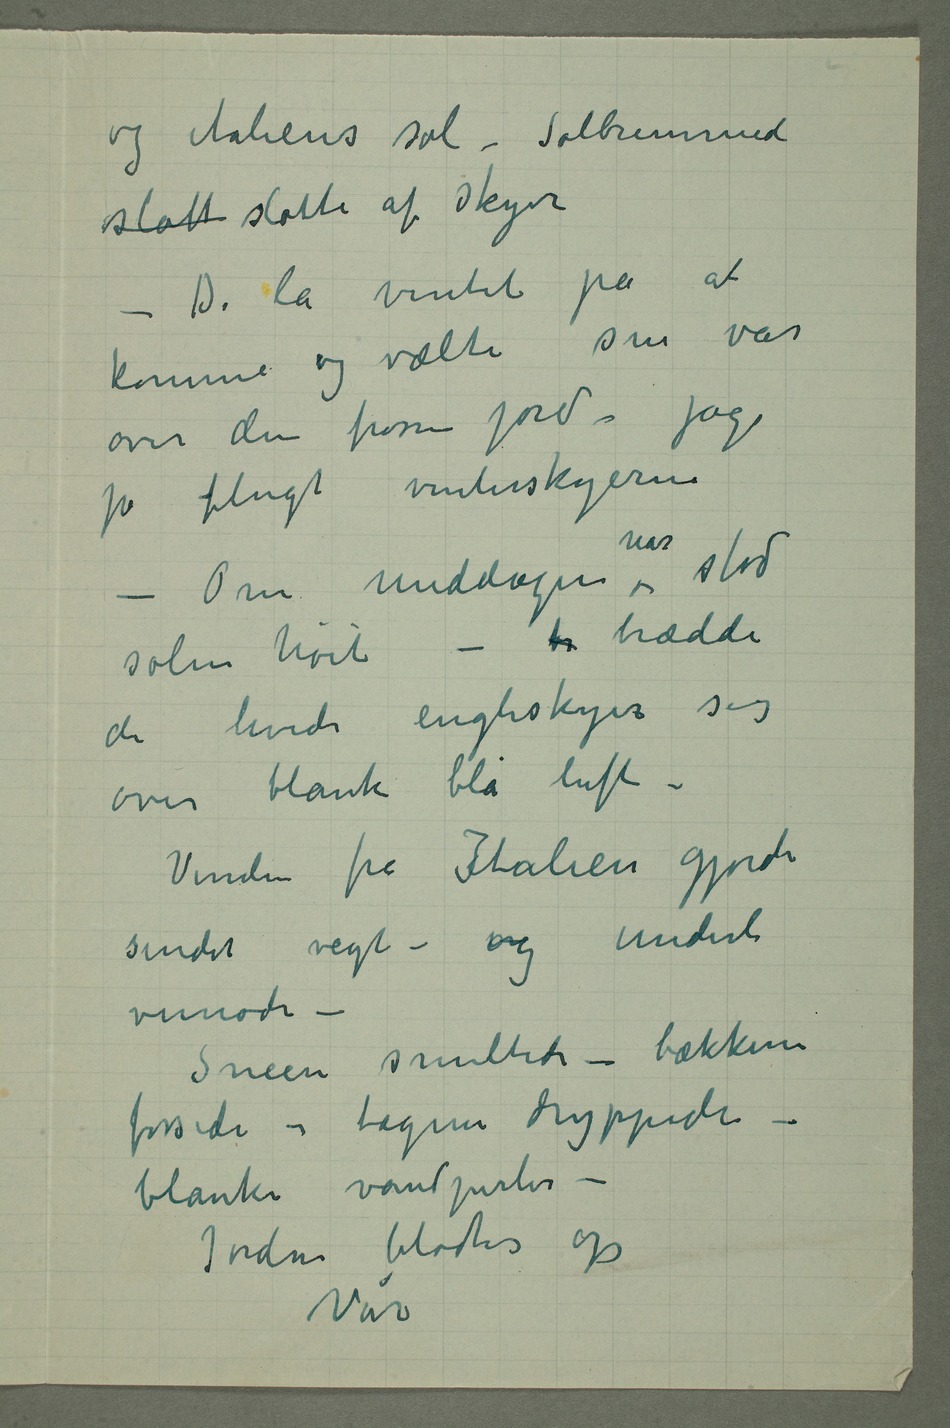 og italiens sol – Solbremmed
slott slotte af skyer
– De lå ventet på at
komme og vælte sin vår
over den frosne jord – jage
på flugt vinterskyerne
– Om middagen når – stod
solen høit – br bredde
de hvide engleskyer sig
over blank blå luft –
Vinden fra Italien gjorde
sindet vegt – og underli
vemode –
Sneen smeltede – bækkene
fossede – tagene dryppede –
blanke vandperler –
Jorden blødtes op
Vår